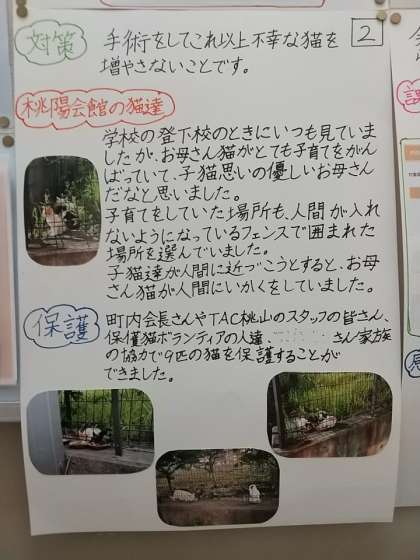 対策
手術をしてこれ以上不幸な猫を
増やさないことです。
2
桃陽会館の猫達
学校の登下校のときにいつも見ていま
したが、お母さん猫がとても子育てをがん
ばっていて、子猫思いの優しいお母さん
だなと思いました。
子育てをしていた場所も、人間が入れ
ないようになっているフェンスで囲まれた
場所を選んでいました。
子猫達が人間に近づこうとすると、お母
さん猫が人間にいかくをしていました。
保護
町内会長さんやTAC桃山のスタッフの皆さん、
保健猫ボランティアの人達、
さん家族
の協力で9匹の猫を保護することが
できました。